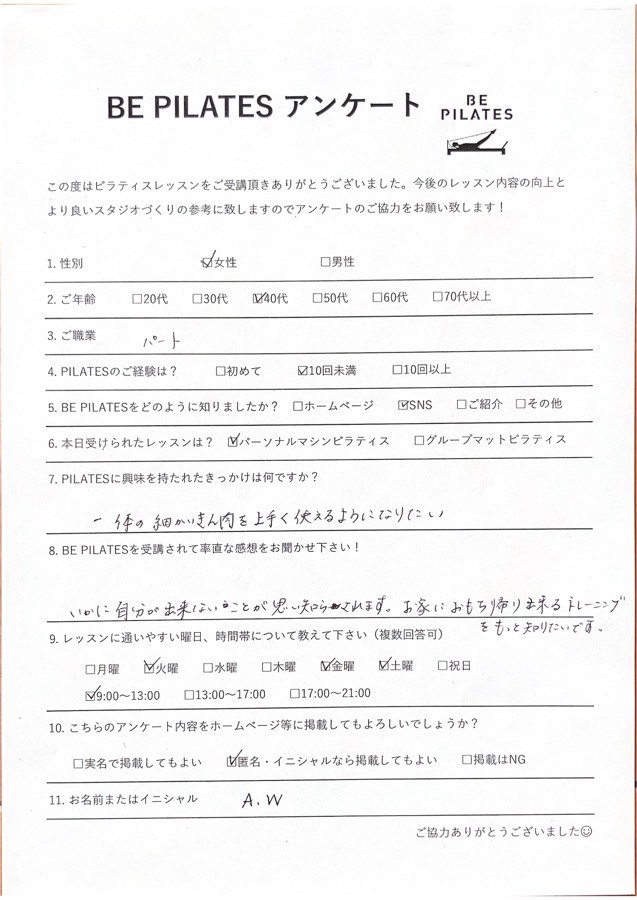 BE PILATES アンケート
BE
PILATES
この度はピラティスレッスンをご受講頂きありがとうございました。今後のレッスン内容の向上と
より良いスタジオづくりの参考に致しますのでアンケートのご協力をお願い致します！
1. 性別 ☑女性 □男性
2. ご年齢 □20代 □30代 ☑40代 □50代 □60代 □70代以上
3. ご職業 パート
4. PILATESのご経験は？ □初めて ☑10回未満 □10回以上
5. BE PILATESをどのように知りましたか？ □ホームページ ☑SNS □ご紹介 □その他
6. 本日受けられたレッスンは？ ☑パーソナルマシンピラティス □グループマットピラティス
7. PILATESに興味を持たれたきっかけは何ですか？
体の細かいきん肉を上手く使えるようになりたい
8. BE PILATESを受講されて率直な感想をお聞かせ下さい！
いかに自分が出来ないことが思い知らされます。お家におもち帰り出来るトレーニング
をもっと知りたいです。
9. レッスンに通いやすい曜日、時間帯について教えて下さい（複数回答可）
□月曜 ☑火曜 □水曜 □木曜 ☑金曜 ☑土曜 □祝日
☑9:00～13:00 □13:00～17:00 □17:00～21:00
10. こちらのアンケート内容をホームページ等に掲載してもよろしいでしょうか？
□実名で掲載してもよい ☑匿名・イニシャルなら掲載してもよい □掲載はNG
11. お名前またはイニシャル A.W
ご協力ありがとうございました☺